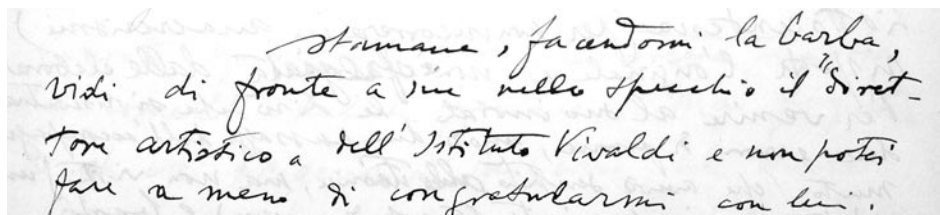 stamane, facendomi la barba,
vidi di fronte a me nello specchio il "diret-
tore artistico" dell'Istituto Vivaldi e non potei
fare a meno di congratularmi con lui.